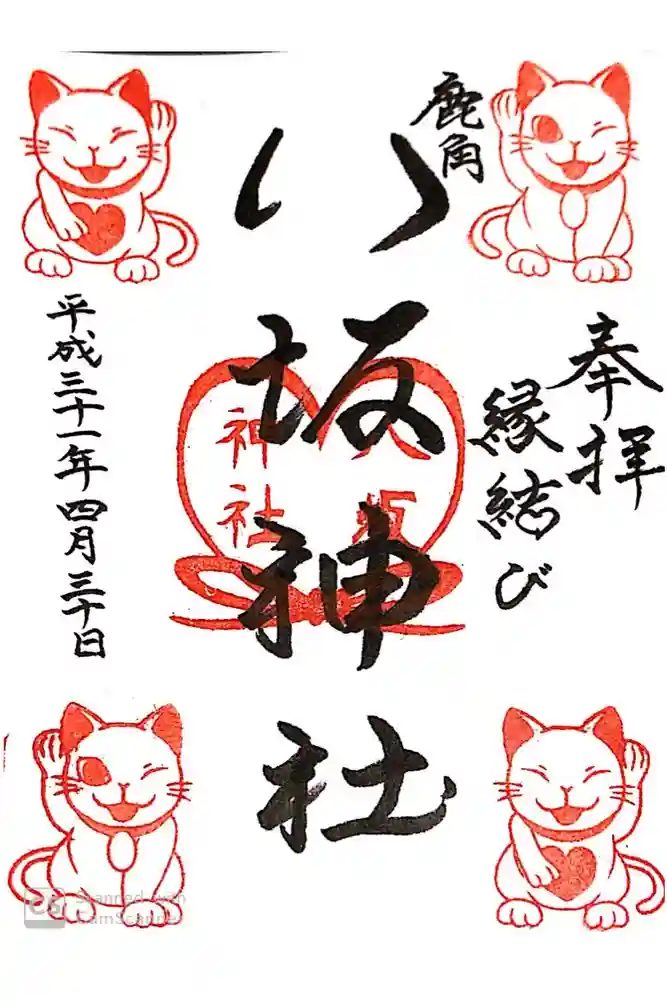 奉拝
縁結び
鹿角
八坂神社
八坂
神社
平成三十一年四月三十日
CS Scanned with
CamScanner